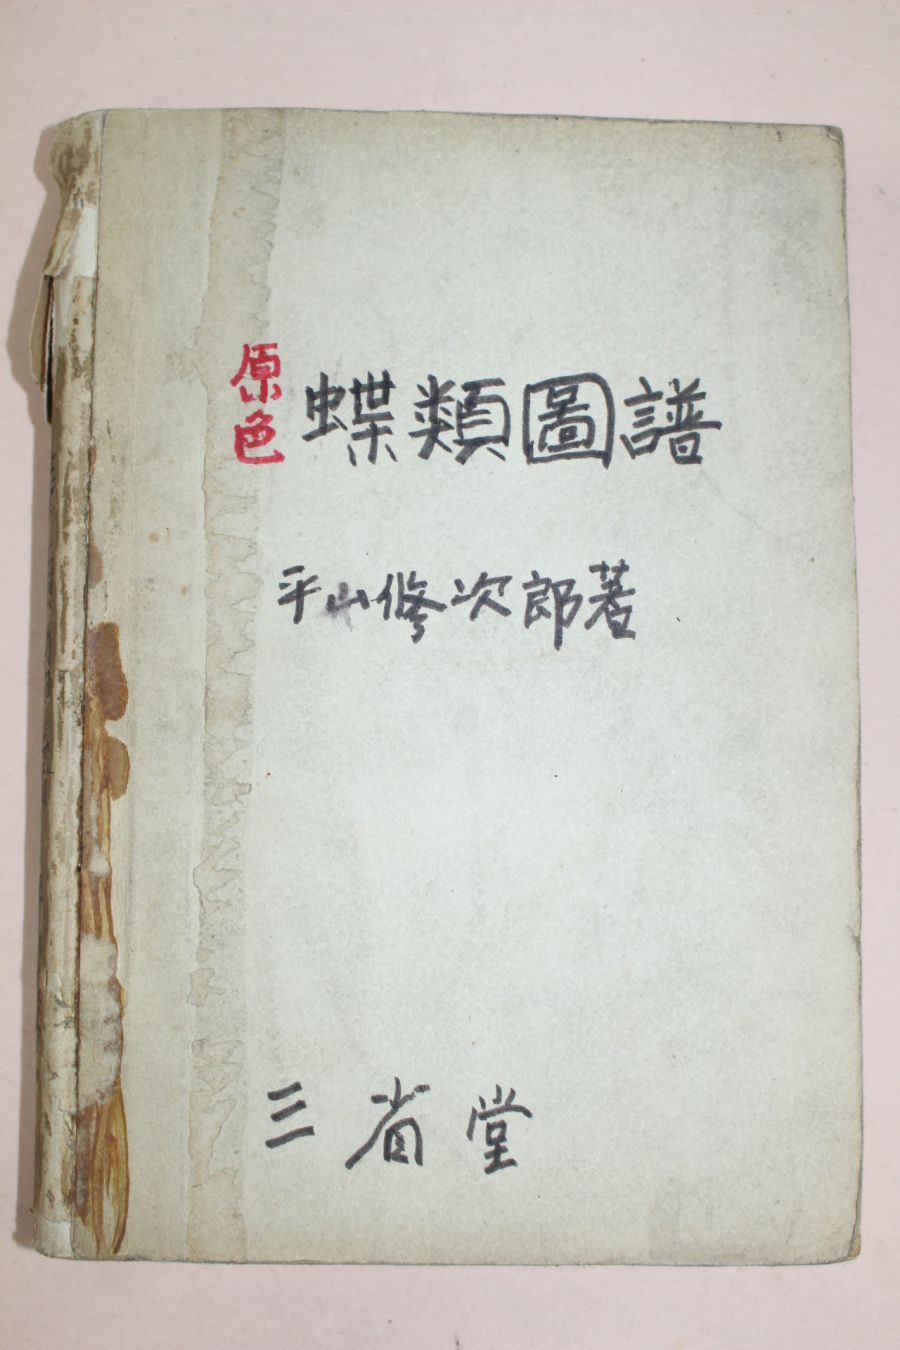 原色 蝶類圖譜
平山修次郎著
三省堂